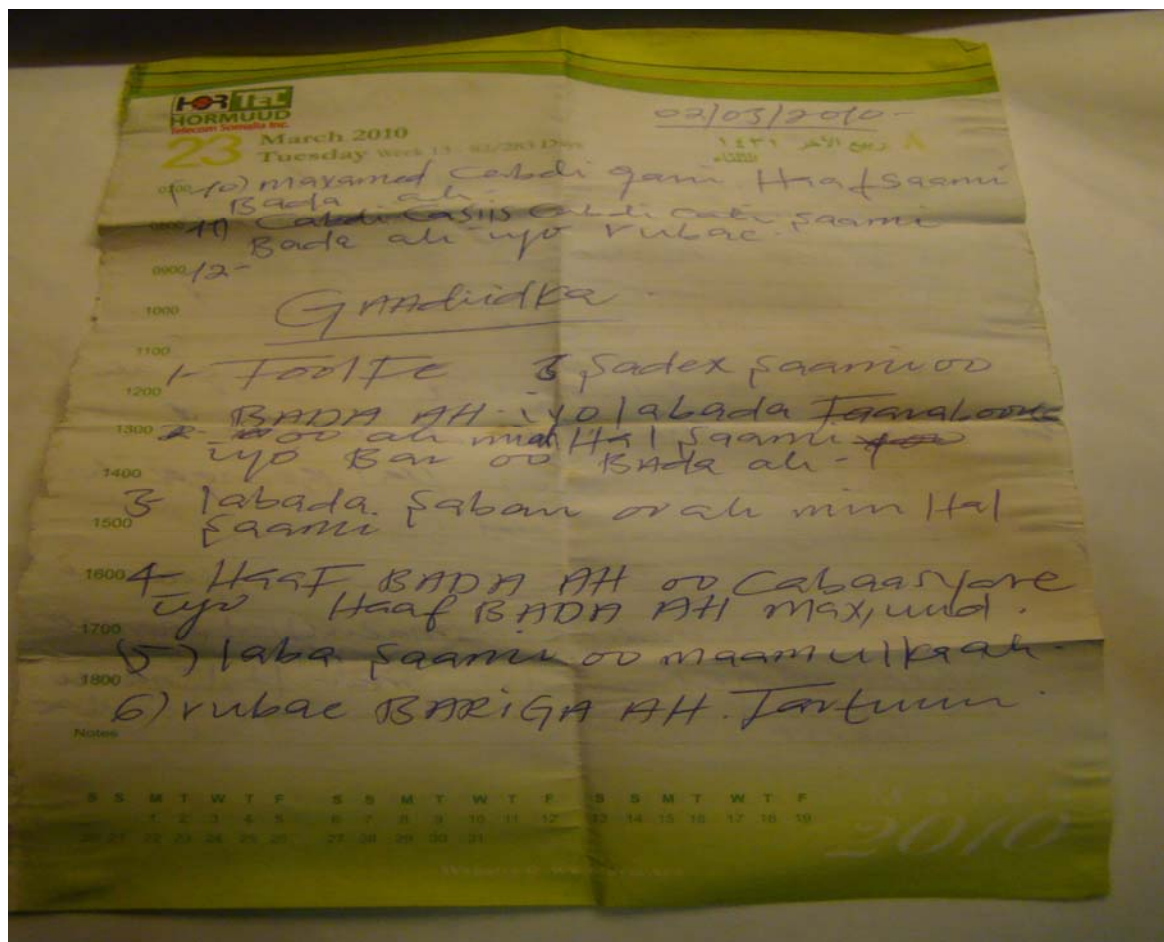 HORTEL
HORMUUD
Telecom Somalia Inc.
02/03/2010-
23 March 2010
Tuesday Week 13
٨ ربيع الآخر ١٤٣١
الثلاثاء
0700 10) maxamed Cabdi gani Haaf Saami
Bada ah.
0800 11) Cabdi Casiis Cabdi Saami
Bada ah iyo rubac.
0900 12-
1000 GAAdiidka.
1100
1- FoolFe 3 Sadex Saami oo
1200
BADA AH iyo labada
1300 2- oo ah min Hal Saami
iyo Bar oo BAda ah-
1400
3 labada Sabam oo ah min Hal
1500 Saami
1600 4- HaaF BADA AH oo Cabaasyare
iyo Haaf BADA AH Maxjuud.
1700
(5) laba Saami oo maamulka ah.
1800
6) rubac BARiGA AH.
Notes
S S M T W T F S S M T W T F S S M T W T F
1 2 3 4 5 6 7 8 9 10 11 12 13 14 15 16 17 18 19
20 21 22 23 24 25 26 27 28 29 30 31
2010